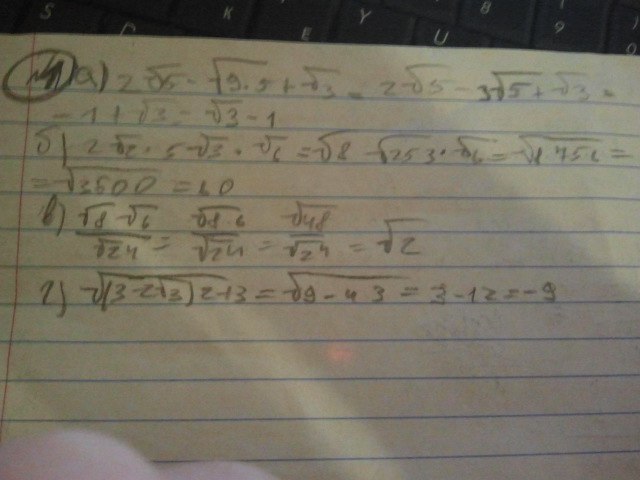 а) 2√5 - √9·5 + √3 = 2√5 - 3√5 + √3 =
- 1 + √3 = √3 - 1
б) 2√2 · 5√3 · √6 = √8 √25 3 · √6 =
= √3600 = 60
в) √8 √6 / √24 = √8 6 / √24 = √48 / √24 = √2
г) √(3-2√3)2 + 3 = √9 - 4 3 = 3 - 12 = -9